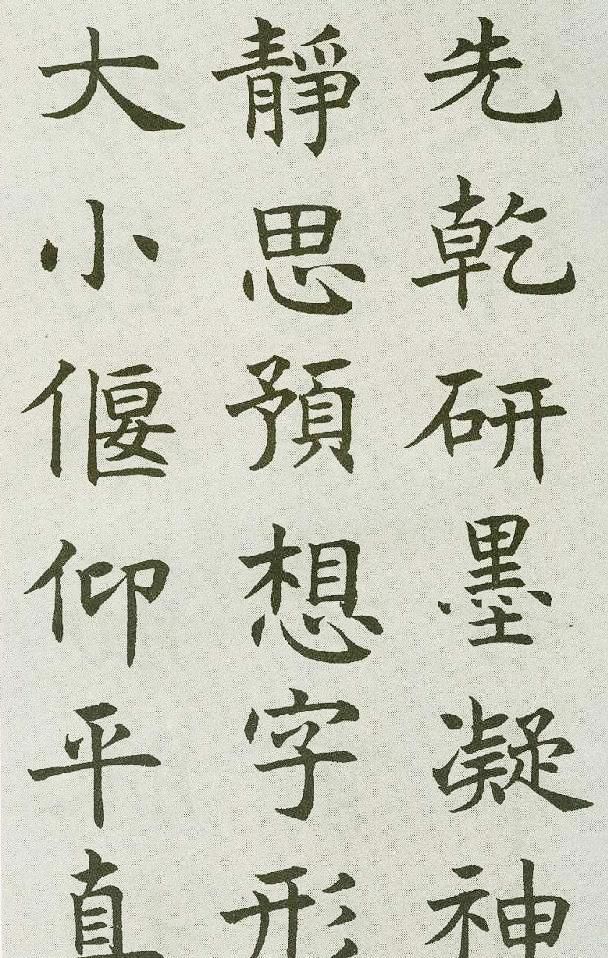 先乾研墨凝神
靜思預想字形
大小偃仰平直